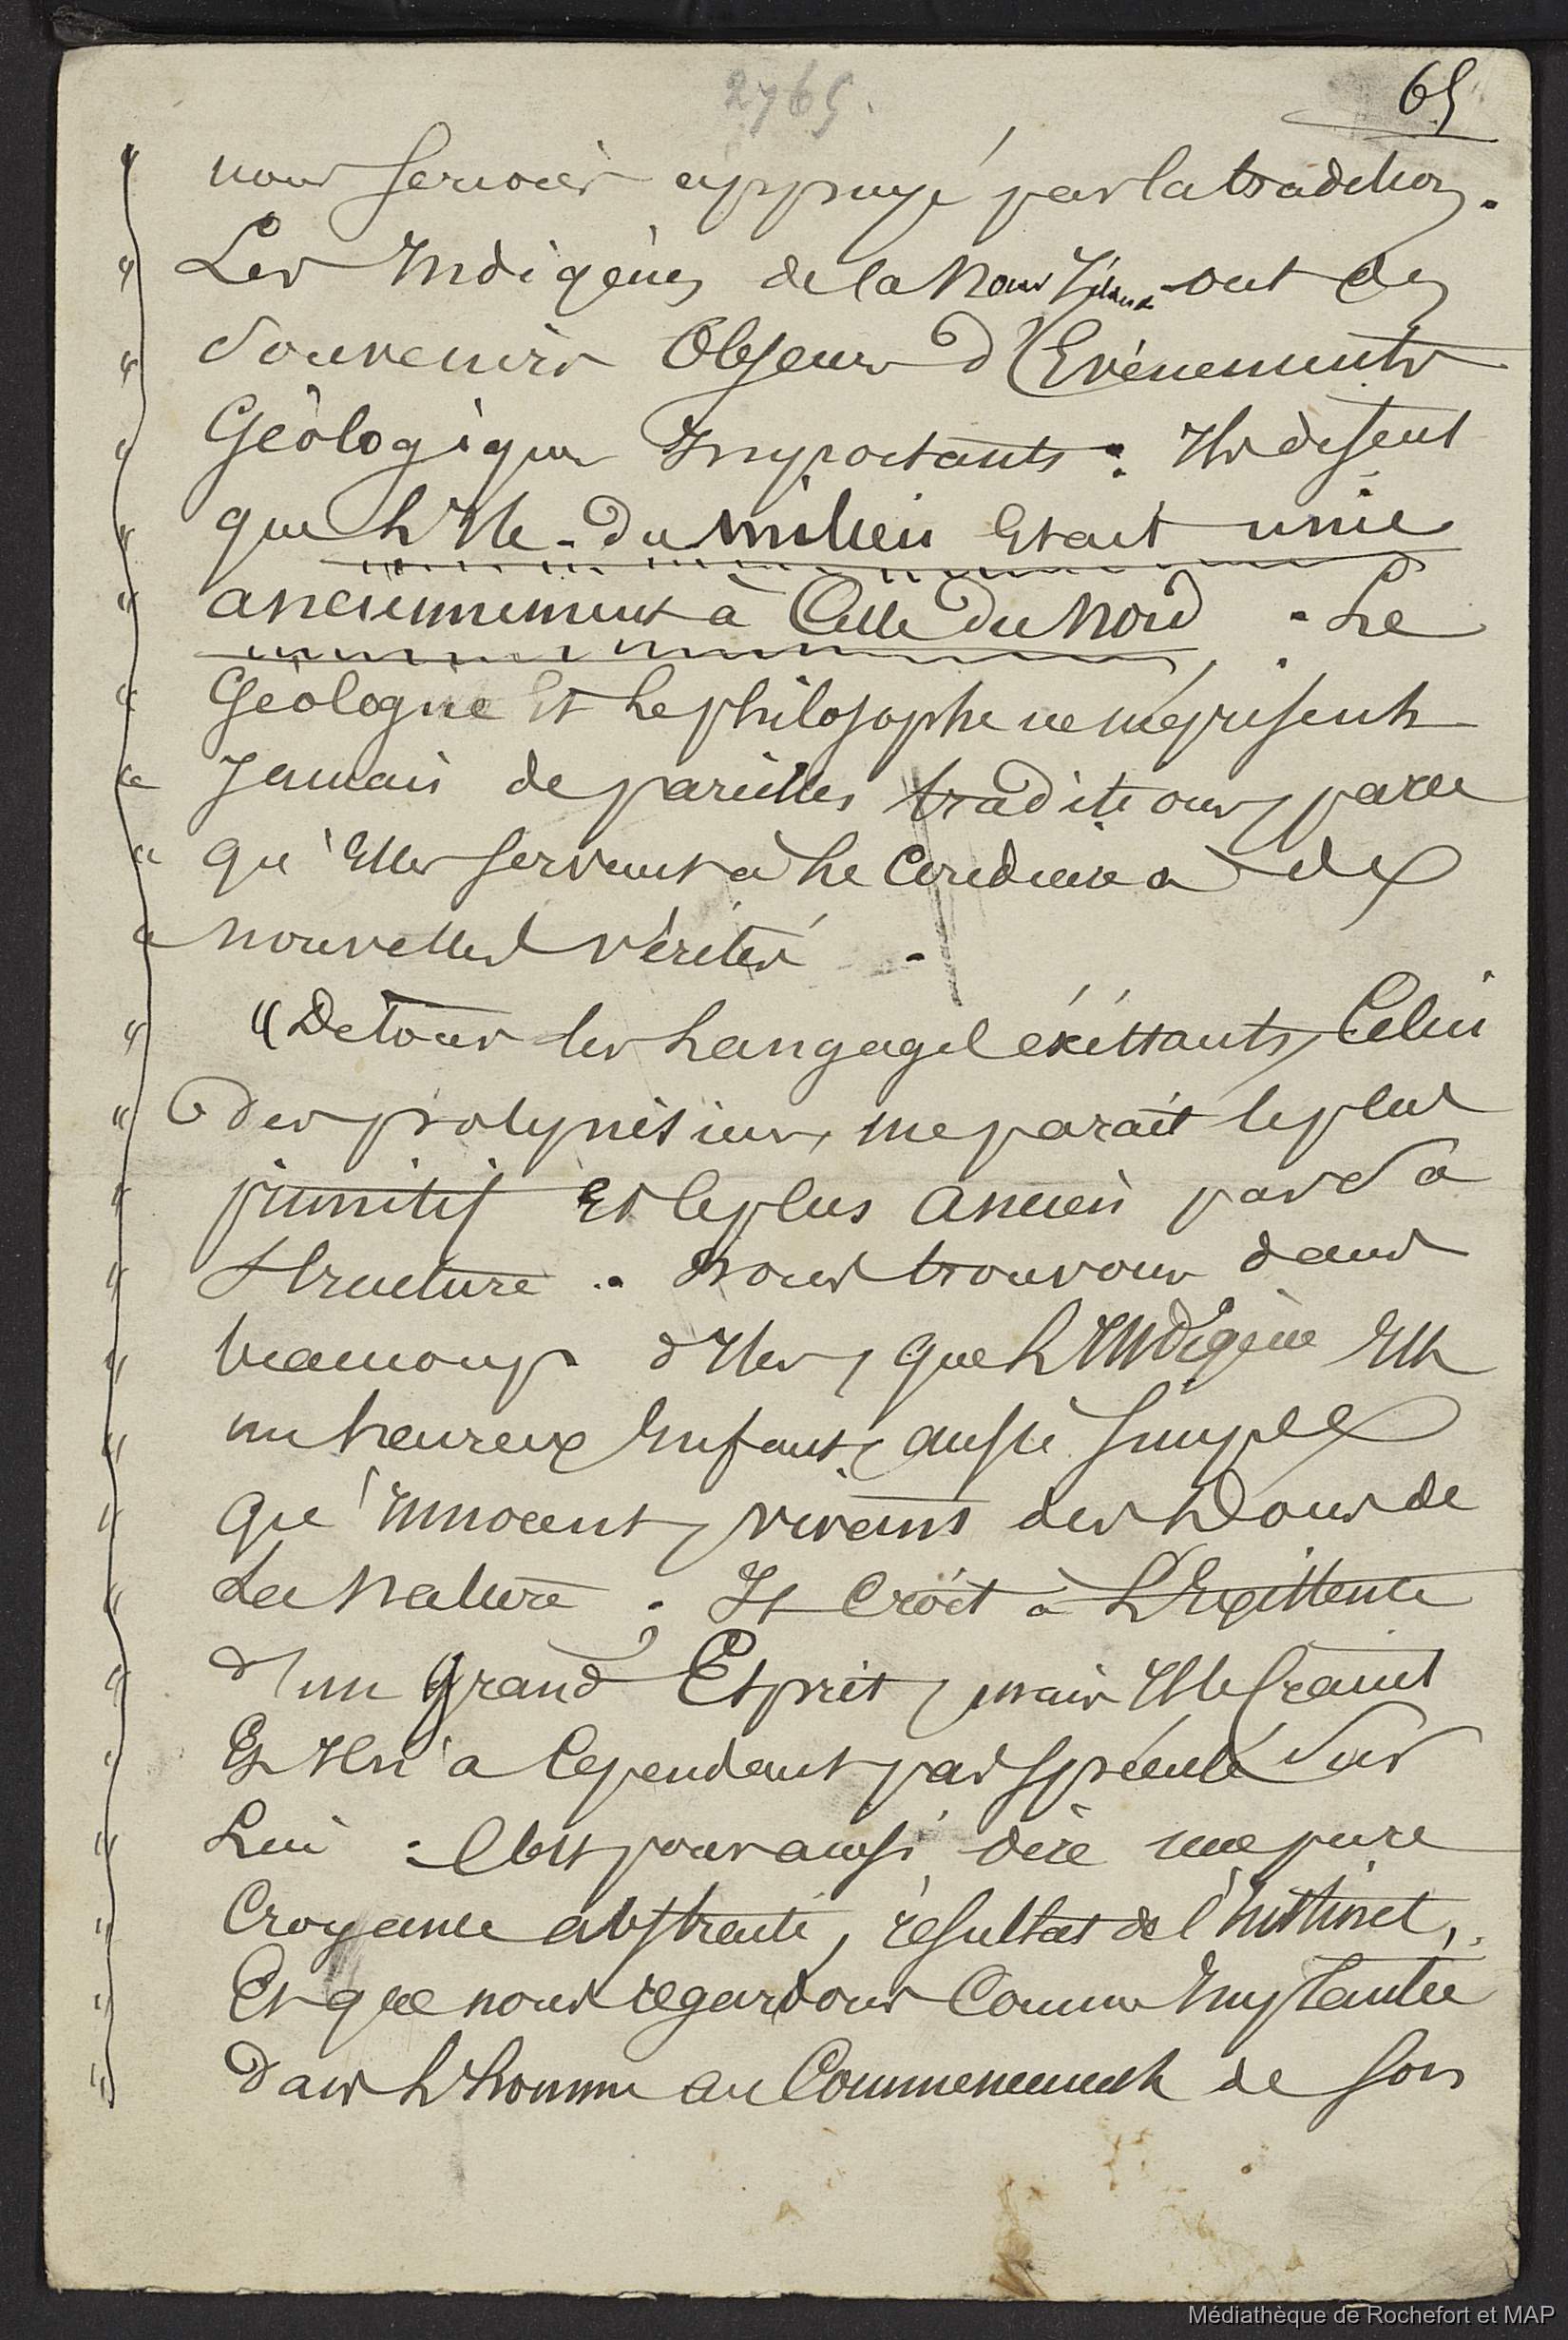 2765.
65
" nous serions appuyé par la tradition.
" Les Indigènes de la Nouv Zélande ont des
" Souvenirs Obscurs d'Evènements
" Géologiques Importants : Ils disent
" que L'Ile-du milieu Etait unie
" anciennement à Celle du Nord . Le
" Géologue Et Le philosophe ne méprisent
" Jamais de pareilles traditions, parce
" qu'Elles servent à Le Conduire a de
" nouvelles vérités .
" De tous les Langages éxistants, Celui
" des polynésiens, me parait le plus
" primitif Et le plus ancien par Sa
" Structure . Nous trouvons dans
" beaucoup d'Iles, que L'Indigène Est
" un heureux Enfant, aussi Simple
" qu'Innocent, vivant des Dons de
" La Nature . Il Croit à L'Existence
" d'un grand Esprit, mais Il le Craint
" Et Il n'a Cependant pas spéculé Sur
" Lui : C'est pour ainsi dire une pure
" Croyance abstraite, résultat de l'Instinct,
" Et que nous regardons Comme Implantée
" Dans L'homme au Commencement de son
Médiathèque de Rochefort et MAP